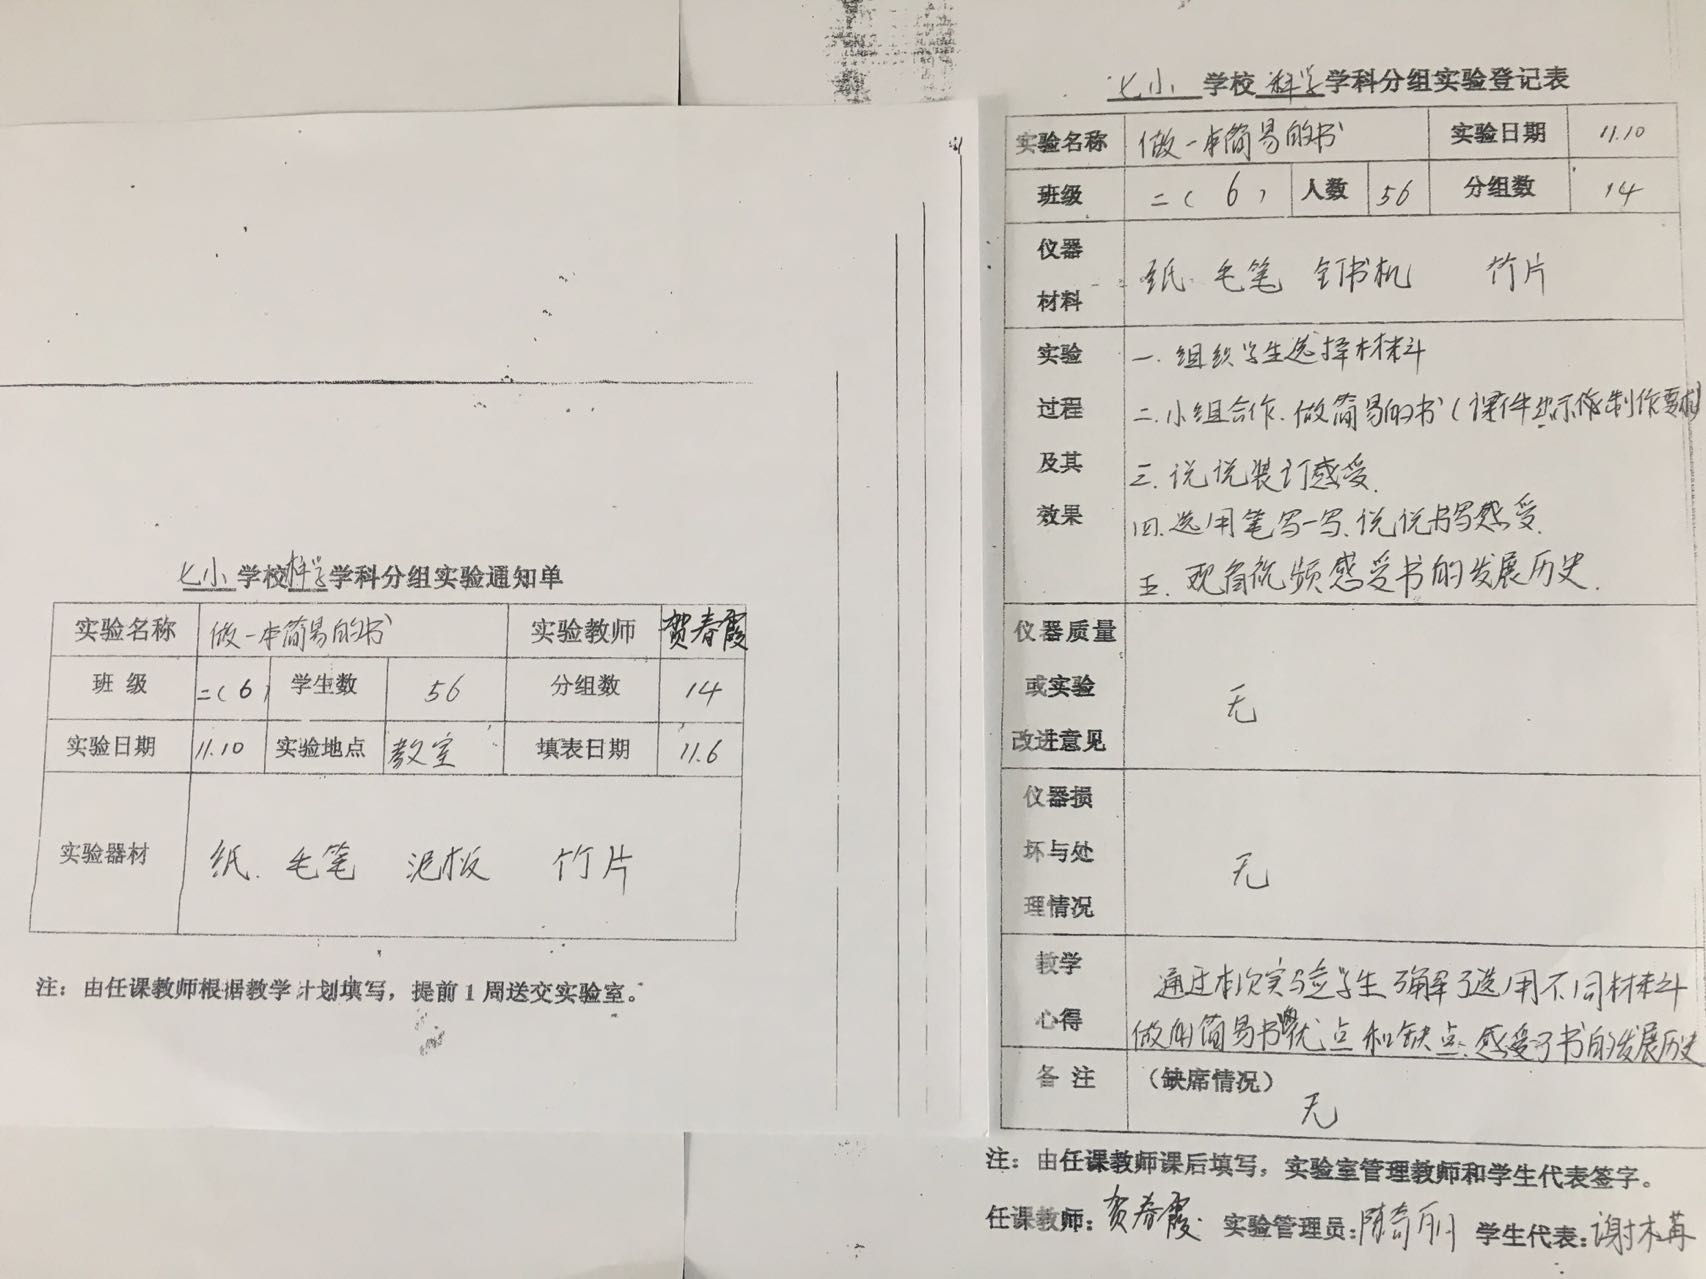 七小学校科学学科分组实验通知单
实验名称 做一本简易的书 实验教师 贺春霞
班级 二(6) 学生数 56 分组数 14
实验日期 11.10 实验地点 教室 填表日期 11.6
实验器材 纸. 毛笔 泥板 竹片
注：由任课教师根据教学计划填写，提前1周送交实验室。
七小学校科学学科分组实验登记表
实验名称 做一本简易的书 实验日期 11.10
班级 二(6) 人数 56 分组数 14
仪器材料 纸. 毛笔 订书机 竹片
实验过程及其效果
一. 组织学生选择材料
二.小组合作.做简易的书(课件出示制作要求)
三.说说装订感受.
四.选用笔写一写.说说书写感受.
五. 观看视频感受书的发展历史.
仪器质量或实验改进意见 无
仪器损坏与处理情况 无
教学心得
通过本次实验学生了解了选用不同材料
做的简易书的优点和缺点.感受了书的发展历史
备注 （缺席情况）
无
注：由任课教师课后填写，实验室管理教师和学生代表签字。
任课教师：贺春霞. 实验管理员：陈奇丽 学生代表：谢木苒